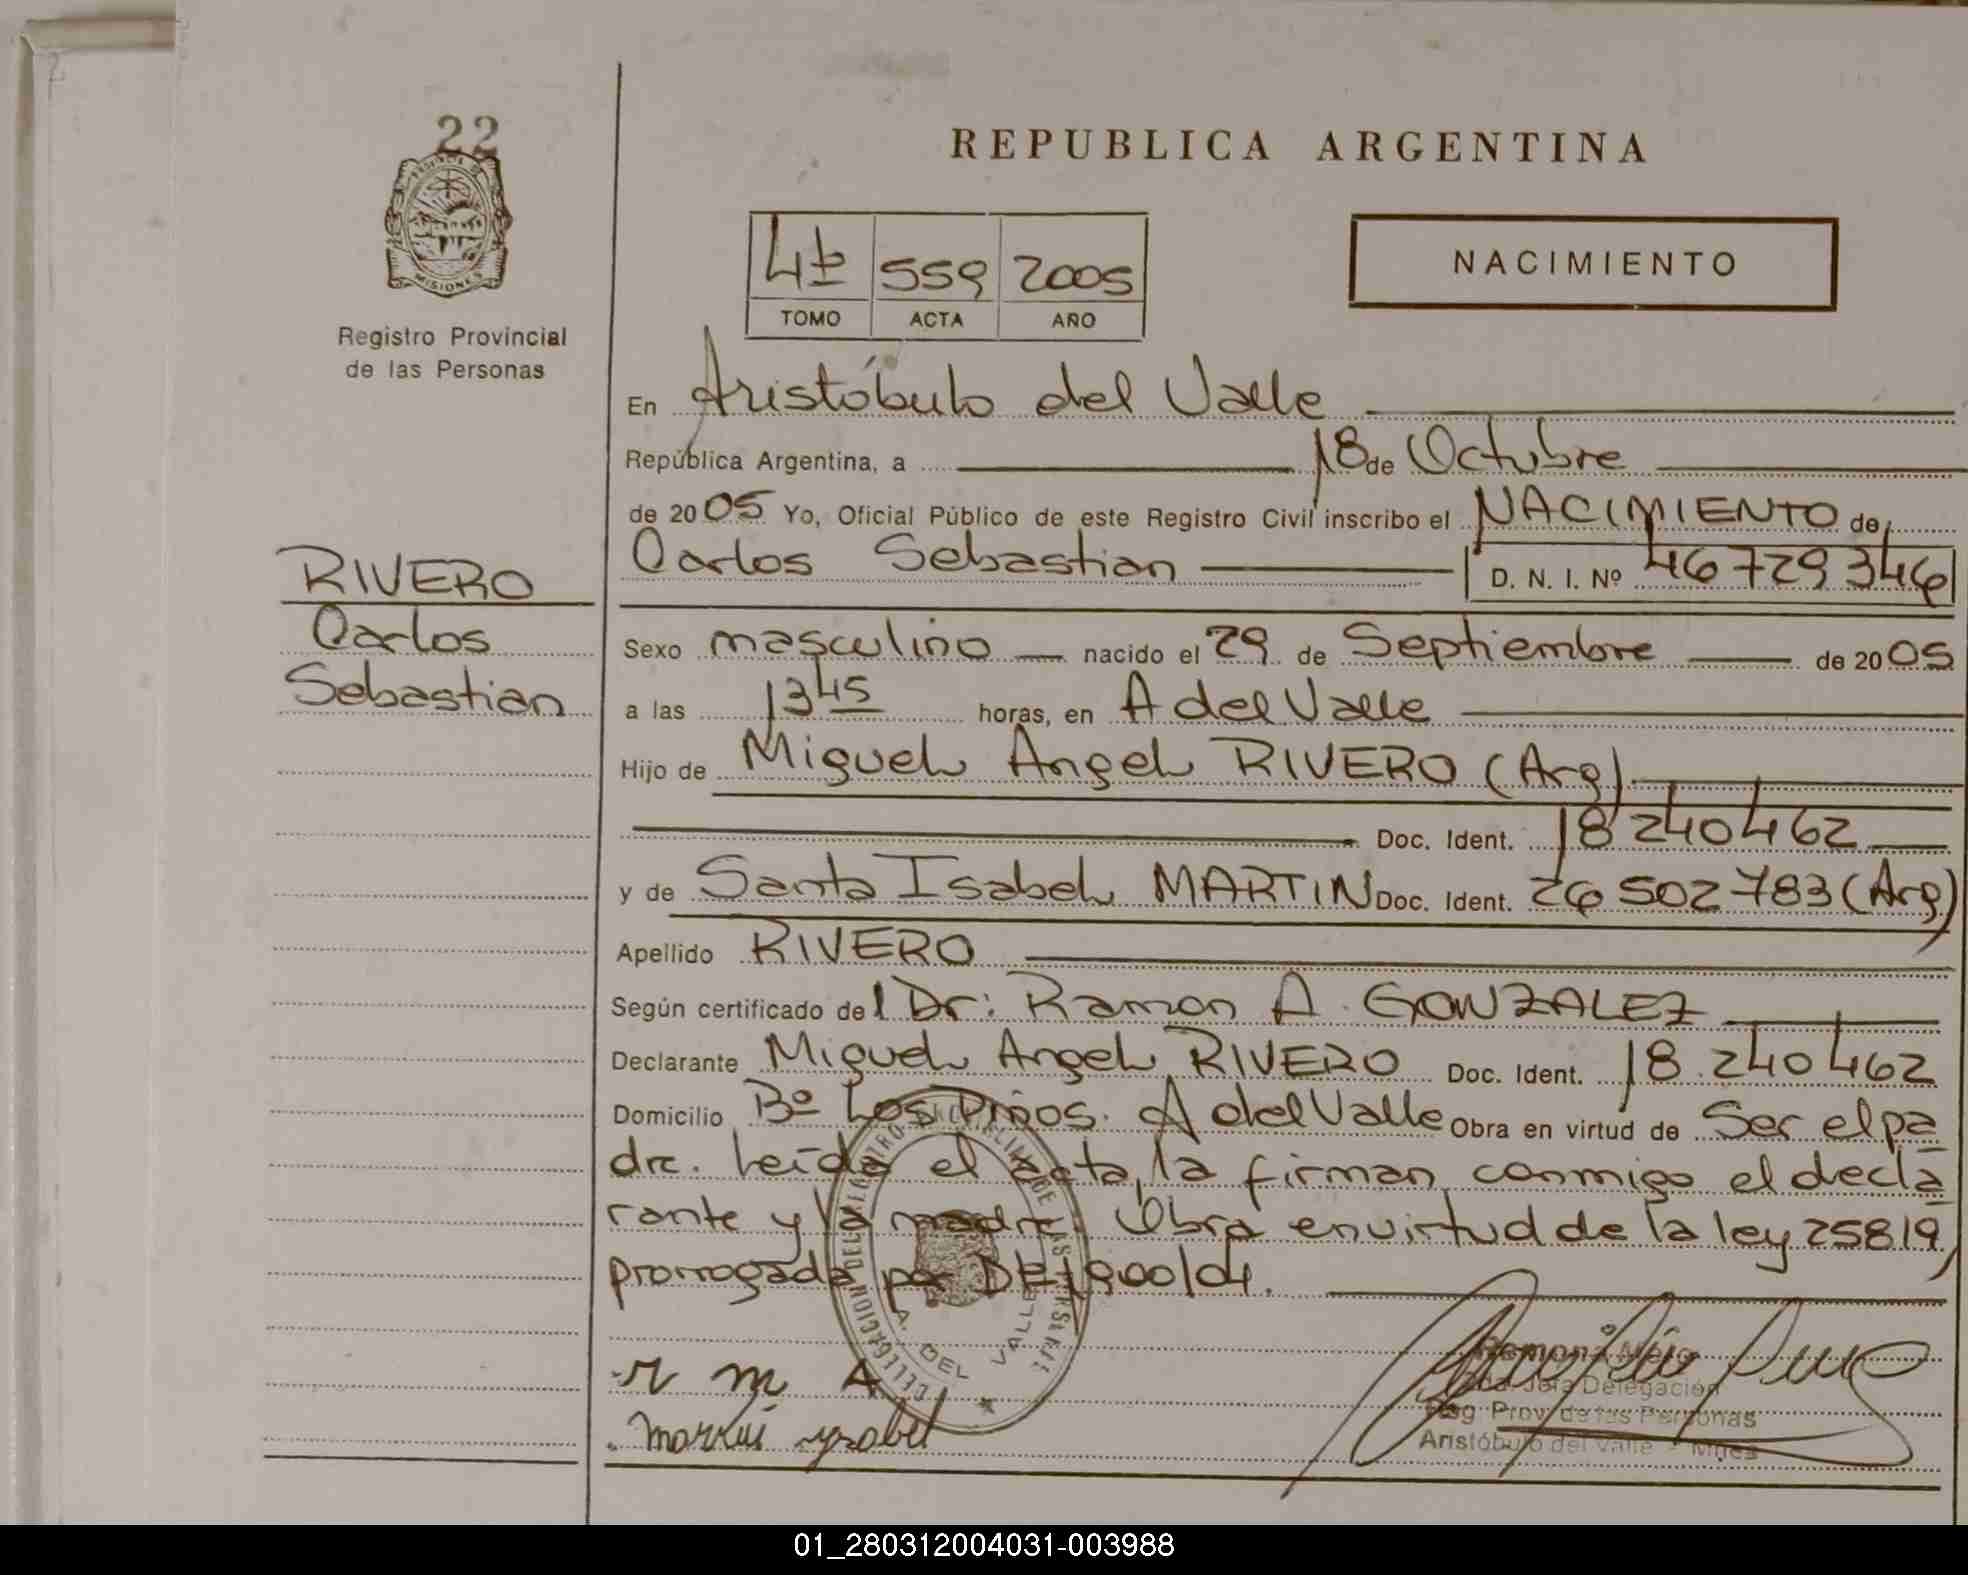 22
PROVINCIA DE
MISIONES
Registro Provincial
de las Personas
RIVERO
Carlos
Sebastian
REPUBLICA ARGENTINA
4to 559 2005
TOMO ACTA AÑO
NACIMIENTO
En Aristóbulo del Valle
República Argentina, a 18 de Octubre
de 2005 Yo, Oficial Público de este Registro Civil inscribo el NACIMIENTO de
Carlos Sebastian D. N. I. Nº 46729346
Sexo masculino nacido el 29 de Septiembre de 2005
a las 13 45 horas, en A del Valle
Hijo de Miguel Angel RIVERO (Arg)
Doc. Ident. 18 240462
y de Santa Isabel MARTIN Doc. Ident. 26 502 783 (Arg)
Apellido RIVERO
Según certificado del Dr: Ramon A. GONZALEZ
Declarante Miguel Angel RIVERO Doc. Ident. 18.240462
Domicilio Bº Los Pinos. A del Valle Obra en virtud de Ser el pa
dre. Leída el acta, la firman conmigo el decla
rante y la madre. Obra en virtud de la ley 25819,
prorrogada por
A. DEL VALLE
r m A
2da. Jefa Delegación
Reg Prov de las Personas
Aristóbulo del Valle - Mnes
01_280312004031-003988